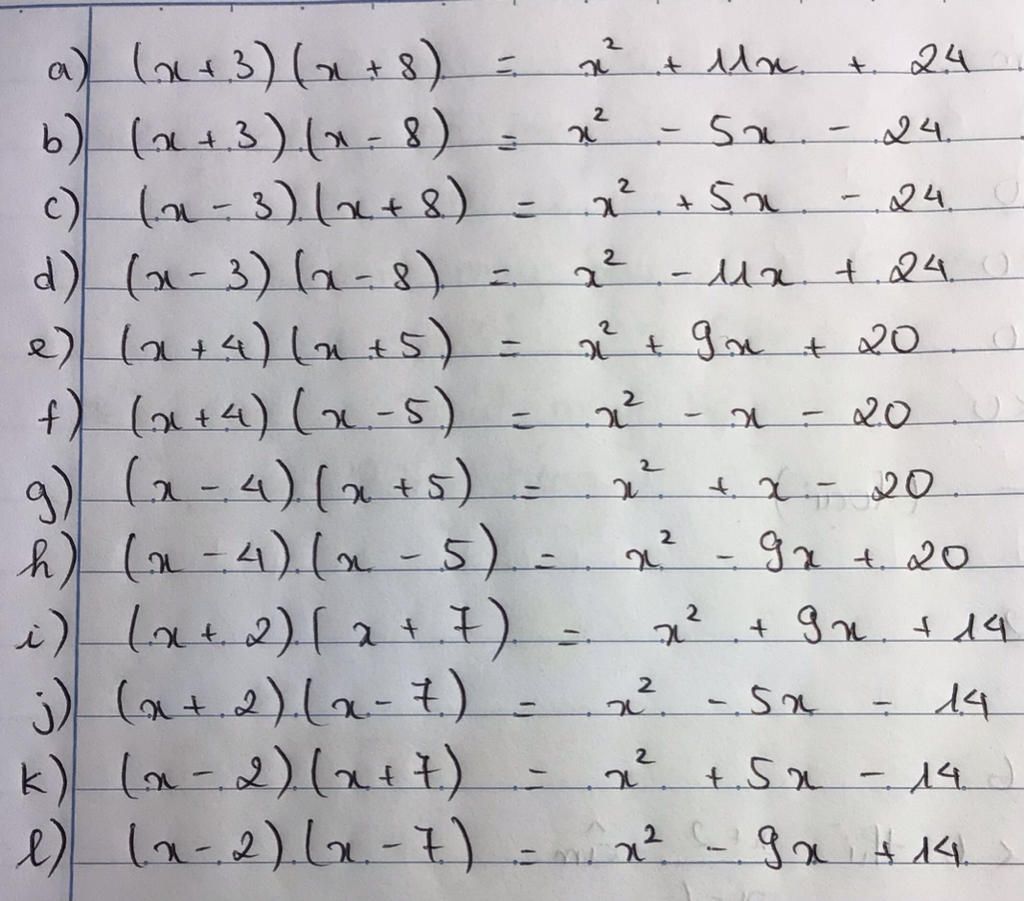 a) (x + 3) (x + 8) = x² + 11x + 24
b) (x + 3) (x - 8) = x² - 5x - 24
c) (x - 3) (x + 8) = x² + 5x - 24
d) (x - 3) (x - 8) = x² - 11x + 24
e) (x + 4) (x + 5) = x² + 9x + 20
f) (x + 4) (x - 5) = x² - x - 20
g) (x - 4) (x + 5) = x² + x - 20
h) (x - 4) (x - 5) = x² - 9x + 20
i) (x + 2) (x + 7) = x² + 9x + 14
j) (x + 2) (x - 7) = x² - 5x - 14
k) (x - 2) (x + 7) = x² + 5x - 14
l) (x - 2) (x - 7) = x² - 9x + 14